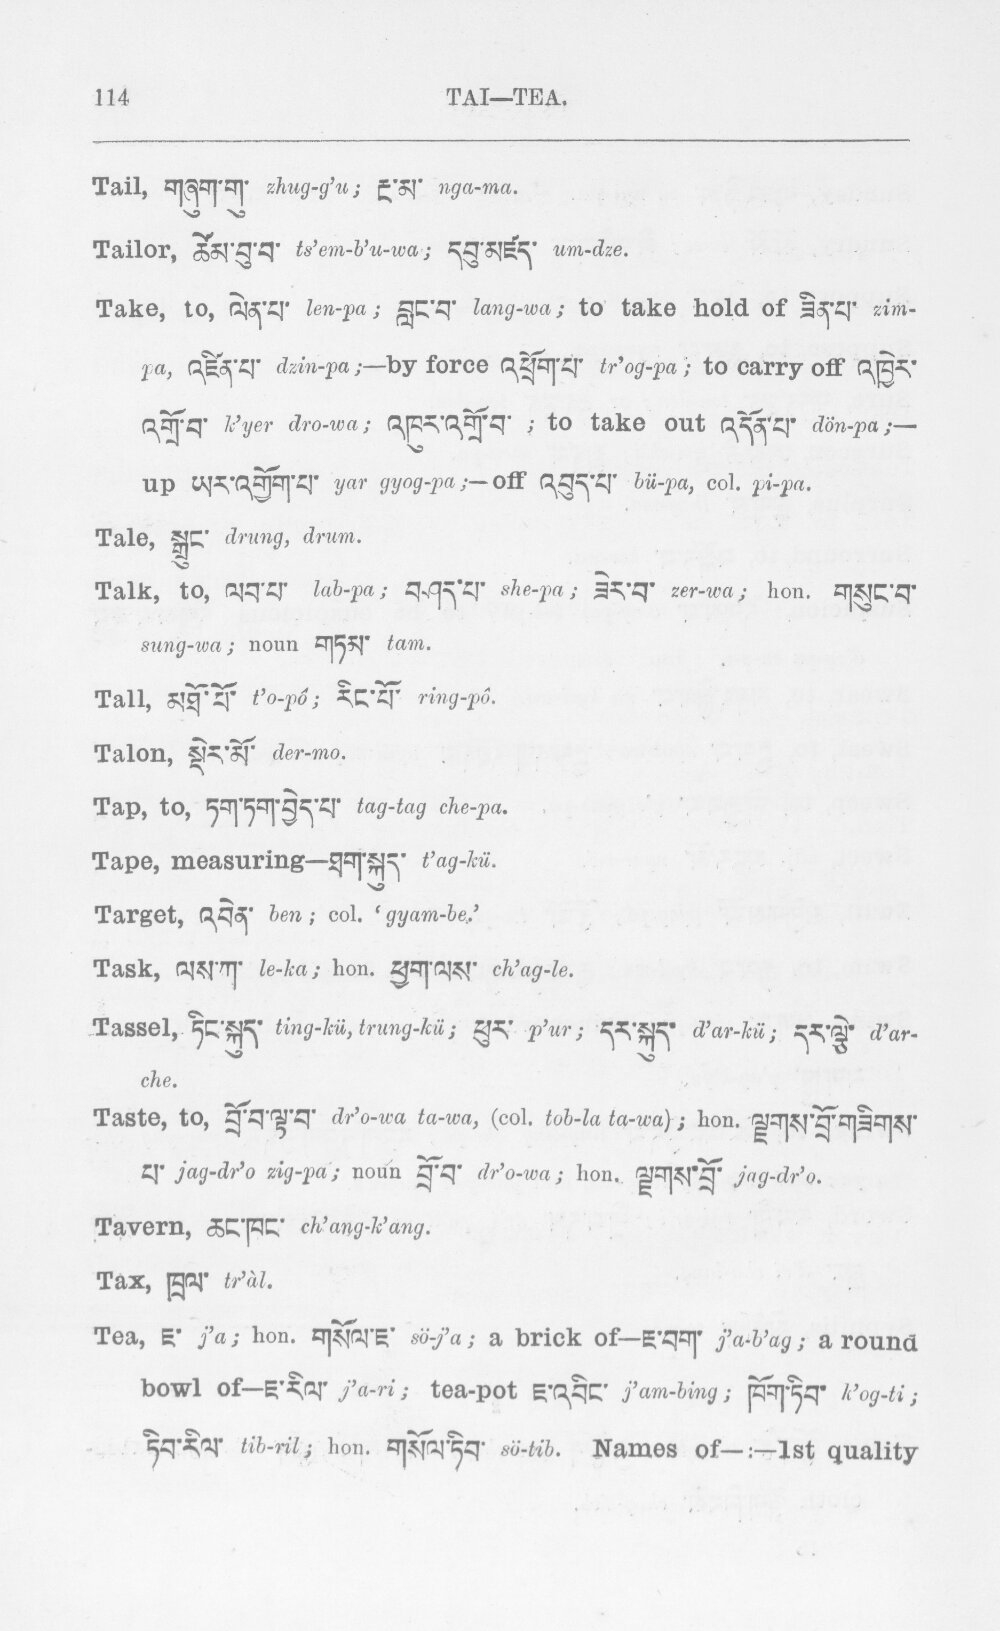 114 TAI—TEA.
Tail, གཞུག་གུ་ zhug-g'u; རྔ་མ་ nga-ma.
Tailor, ཚེམ་བུ་བ་ ts'em-b'u-wa; དབུ་མཛད་ um-dze.
Take, to, ལེན་པ་ len-pa; བླང་བ་ lang-wa; to take hold of ཟིན་པ་ zim-
pa, འཛིན་པ་ dzin-pa;—by force འཕྲོག་པ་ tr'og-pa; to carry off འཁྱེར་
འགྲོ་བ་ k'yer dro-wa; འཁུར་འགྲོ་བ་ ; to take out འདོན་པ་ dön-pa;—
up ཡར་འགྱོག་པ་ yar gyog-pa;—off འབུད་པ་ bü-pa, col. pi-pa.
Tale, སྒྲུང་ drung, drum.
Talk, to, ལབ་པ་ lab-pa; བཤད་པ་ she-pa; ཟེར་བ་ zer-wa; hon. གསུང་བ་
sung-wa; noun གཏམ་ tam.
Tall, མཐོ་པོ་ t'o-pó; རིང་པོ་ ring-pó.
Talon, སྡེར་མོ་ der-mo.
Tap, to, ཏག་ཏག་བྱེད་པ་ tag-tag che-pa.
Tape, measuring—ཐག་སྐུད་ t'ag-kü.
Target, འབེན་ ben; col. 'gyam-be.'
Task, ལས་ཀ་ le-ka; hon. ཕྱག་ལས་ ch'ag-le.
Tassel, ཏིང་སྐུད་ ting-kü, trung-kü; ཕུར་ p'ur; དར་སྐུད་ d'ar-kü; དར་ལྕེ་ d'ar-
che.
Taste, to, བྲོ་བ་ལྟ་བ་ dr'o-wa ta-wa, (col. tob-la ta-wa); hon. ལྗགས་བྲོ་གཟིགས་
པ་ jag-dr'o zig-pa; noun བྲོ་བ་ dr'o-wa; hon. ལྗགས་བྲོ་ jag-dr'o.
Tavern, ཆང་ཁང་ ch'ang-k'ang.
Tax, ཁྲལ་ tr'àl.
Tea, ཇ་ j'a; hon. གསོལ་ཇ་ sö-j'a; a brick of—ཇ་བག་ j'a-b'ag; a round
bowl of—ཇ་རིལ་ j'a-ri; tea-pot ཇ་འབིང་ j'am-bing; ཁོག་ཏིབ་ k'og-ti;
ཏིབ་རིལ་ tib-ril; hon. གསོལ་ཏིབ་ sö-tib. Names of—:—1st quality